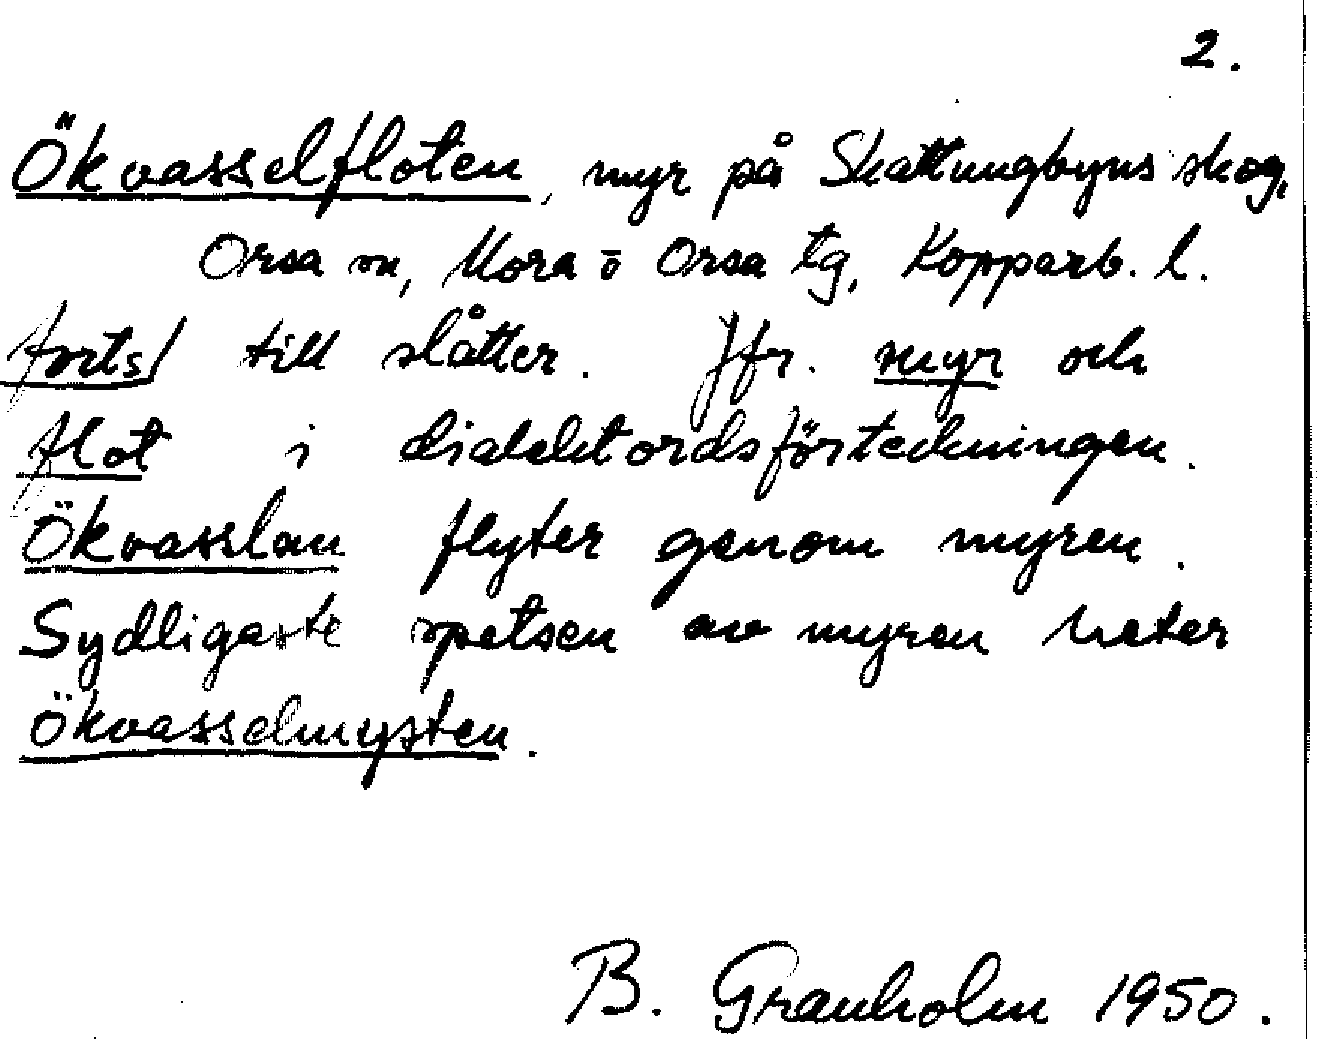 2.
Ökvasselfloten, myr på Skattungbyns skog,
Orsa sn, Mora o Orsa tg, Kopparb. l.
forts/ till slåtter. Jfr. myr och
flot i dialektordsförteckningen.
Ökvasslan flyter genom myren.
Sydligaste spetsen av myren heter
Ökvasselmysten.
B. Granholm 1950.